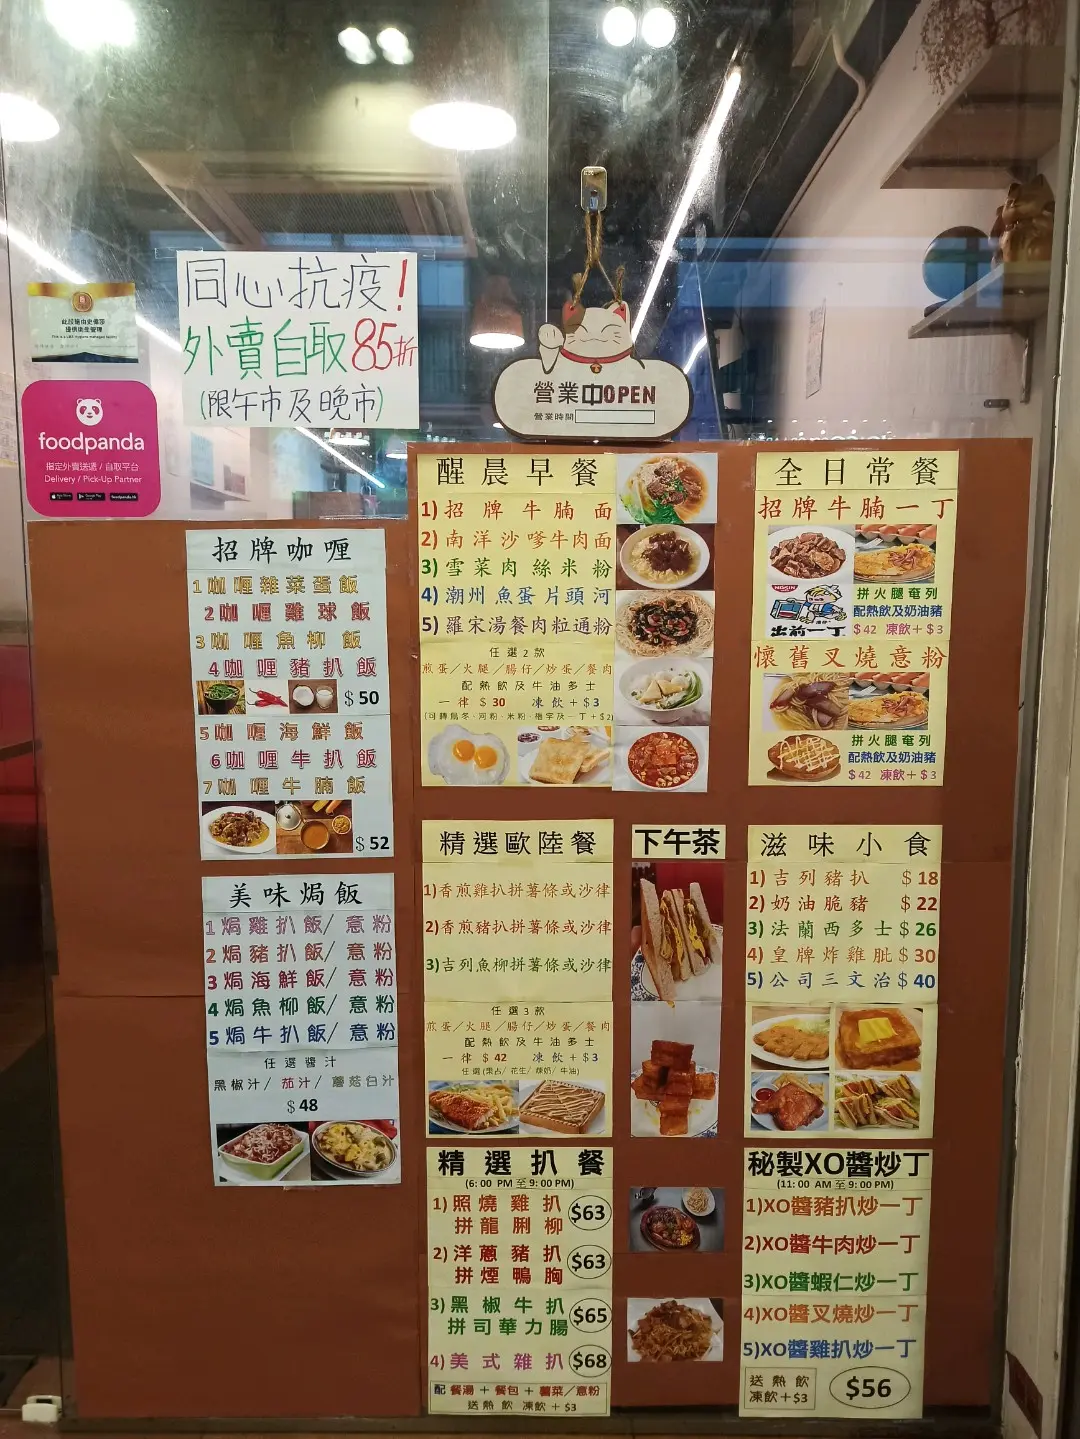 同心抗疫!
外賣自取85折
(限午市及晚市)
此設施由史偉莎
提供衛生管理
foodpanda
指定外賣送遞 / 自取平台
Delivery / Pick-Up Partner
foodpanda.hk
營業中OPEN
營業時間
招牌咖喱
1咖喱雜菜蛋飯
2咖喱雞球飯
3咖喱魚柳飯
4咖喱豬扒飯
$50
5咖喱海鮮飯
6咖喱牛扒飯
7咖喱牛腩飯
$52
美味焗飯
1焗雞扒飯/意粉
2焗豬扒飯/意粉
3焗海鮮飯/意粉
4焗魚柳飯/意粉
5焗牛扒飯/意粉
任選醬汁
黑椒汁/茄汁/蘑菇白汁
$48
醒晨早餐
1)招牌牛腩面
2)南洋沙嗲牛肉面
3)雪菜肉絲米粉
4)潮州魚蛋片頭河
5)羅宋湯餐肉粒通粉
任選2款
煎蛋/火腿/腸仔/炒蛋/餐肉
配熱飲及牛油多士
一律$30 凍飲+$3
全日常餐
招牌牛腩一丁
NISSIN
出前一丁
拼火腿奄列
配熱飲及奶油豬
$42 凍飲+$3
懷舊叉燒意粉
拼火腿奄列
配熱飲及奶油豬
$42 凍飲+$3
精選歐陸餐
1)香煎雞扒拼薯條或沙律
2)香煎豬扒拼薯條或沙律
3)吉列魚柳拼薯條或沙律
任選3款
煎蛋/火腿/腸仔/炒蛋/餐肉
配熱飲及牛油多士
一律$42 凍飲+$3
下午茶
滋味小食
1)吉列豬扒 $18
2)奶油脆豬 $22
3)法蘭西多士$26
4)皇牌炸雞髀$30
5)公司三文治$40
精選扒餐
(6:00 PM至9:00PM)
1)照燒雞扒
拼龍脷柳
$63
2)洋蔥豬扒
拼煙鴨胸
$63
3)黑椒牛扒
拼司華力腸
$65
4)美式雜扒
$68
配 餐湯+餐包+薯菜/意粉
送熱飲 凍飲+$3
秘製XO醬炒丁
(11:00 AM至9:00PM)
1)XO醬豬扒炒一丁
2)XO醬牛肉炒一丁
3)XO醬蝦仁炒一丁
4)XO醬叉燒炒一丁
5)XO醬雞扒炒一丁
送熱飲
凍飲+$3
$56